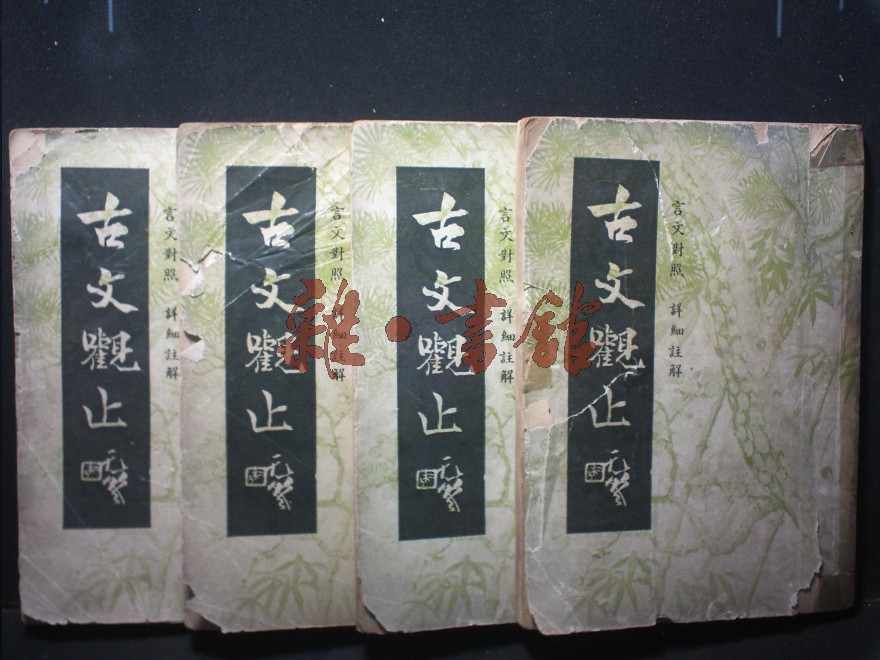 古文觀止
言文對照 詳細註解
古文觀止
言文對照 詳細註解
古文觀止
言文對照 詳細註解
古文觀止
言文對照 詳細註解
雜·書館